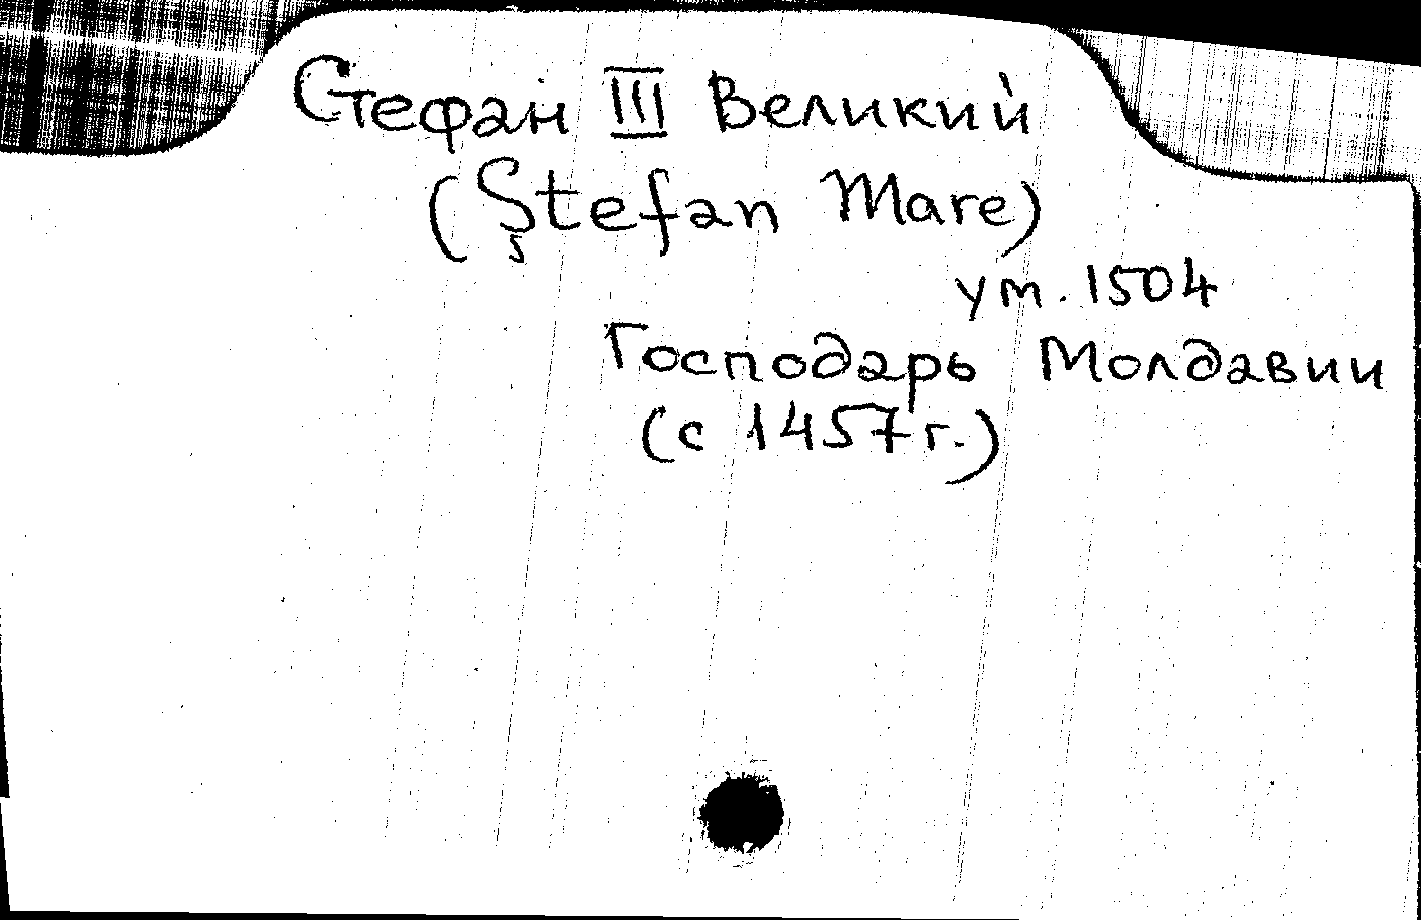 Стефан III Великий
(Ştefan Mare)
ум. 1504
Господарь Молдавии
(с 1457 г.)